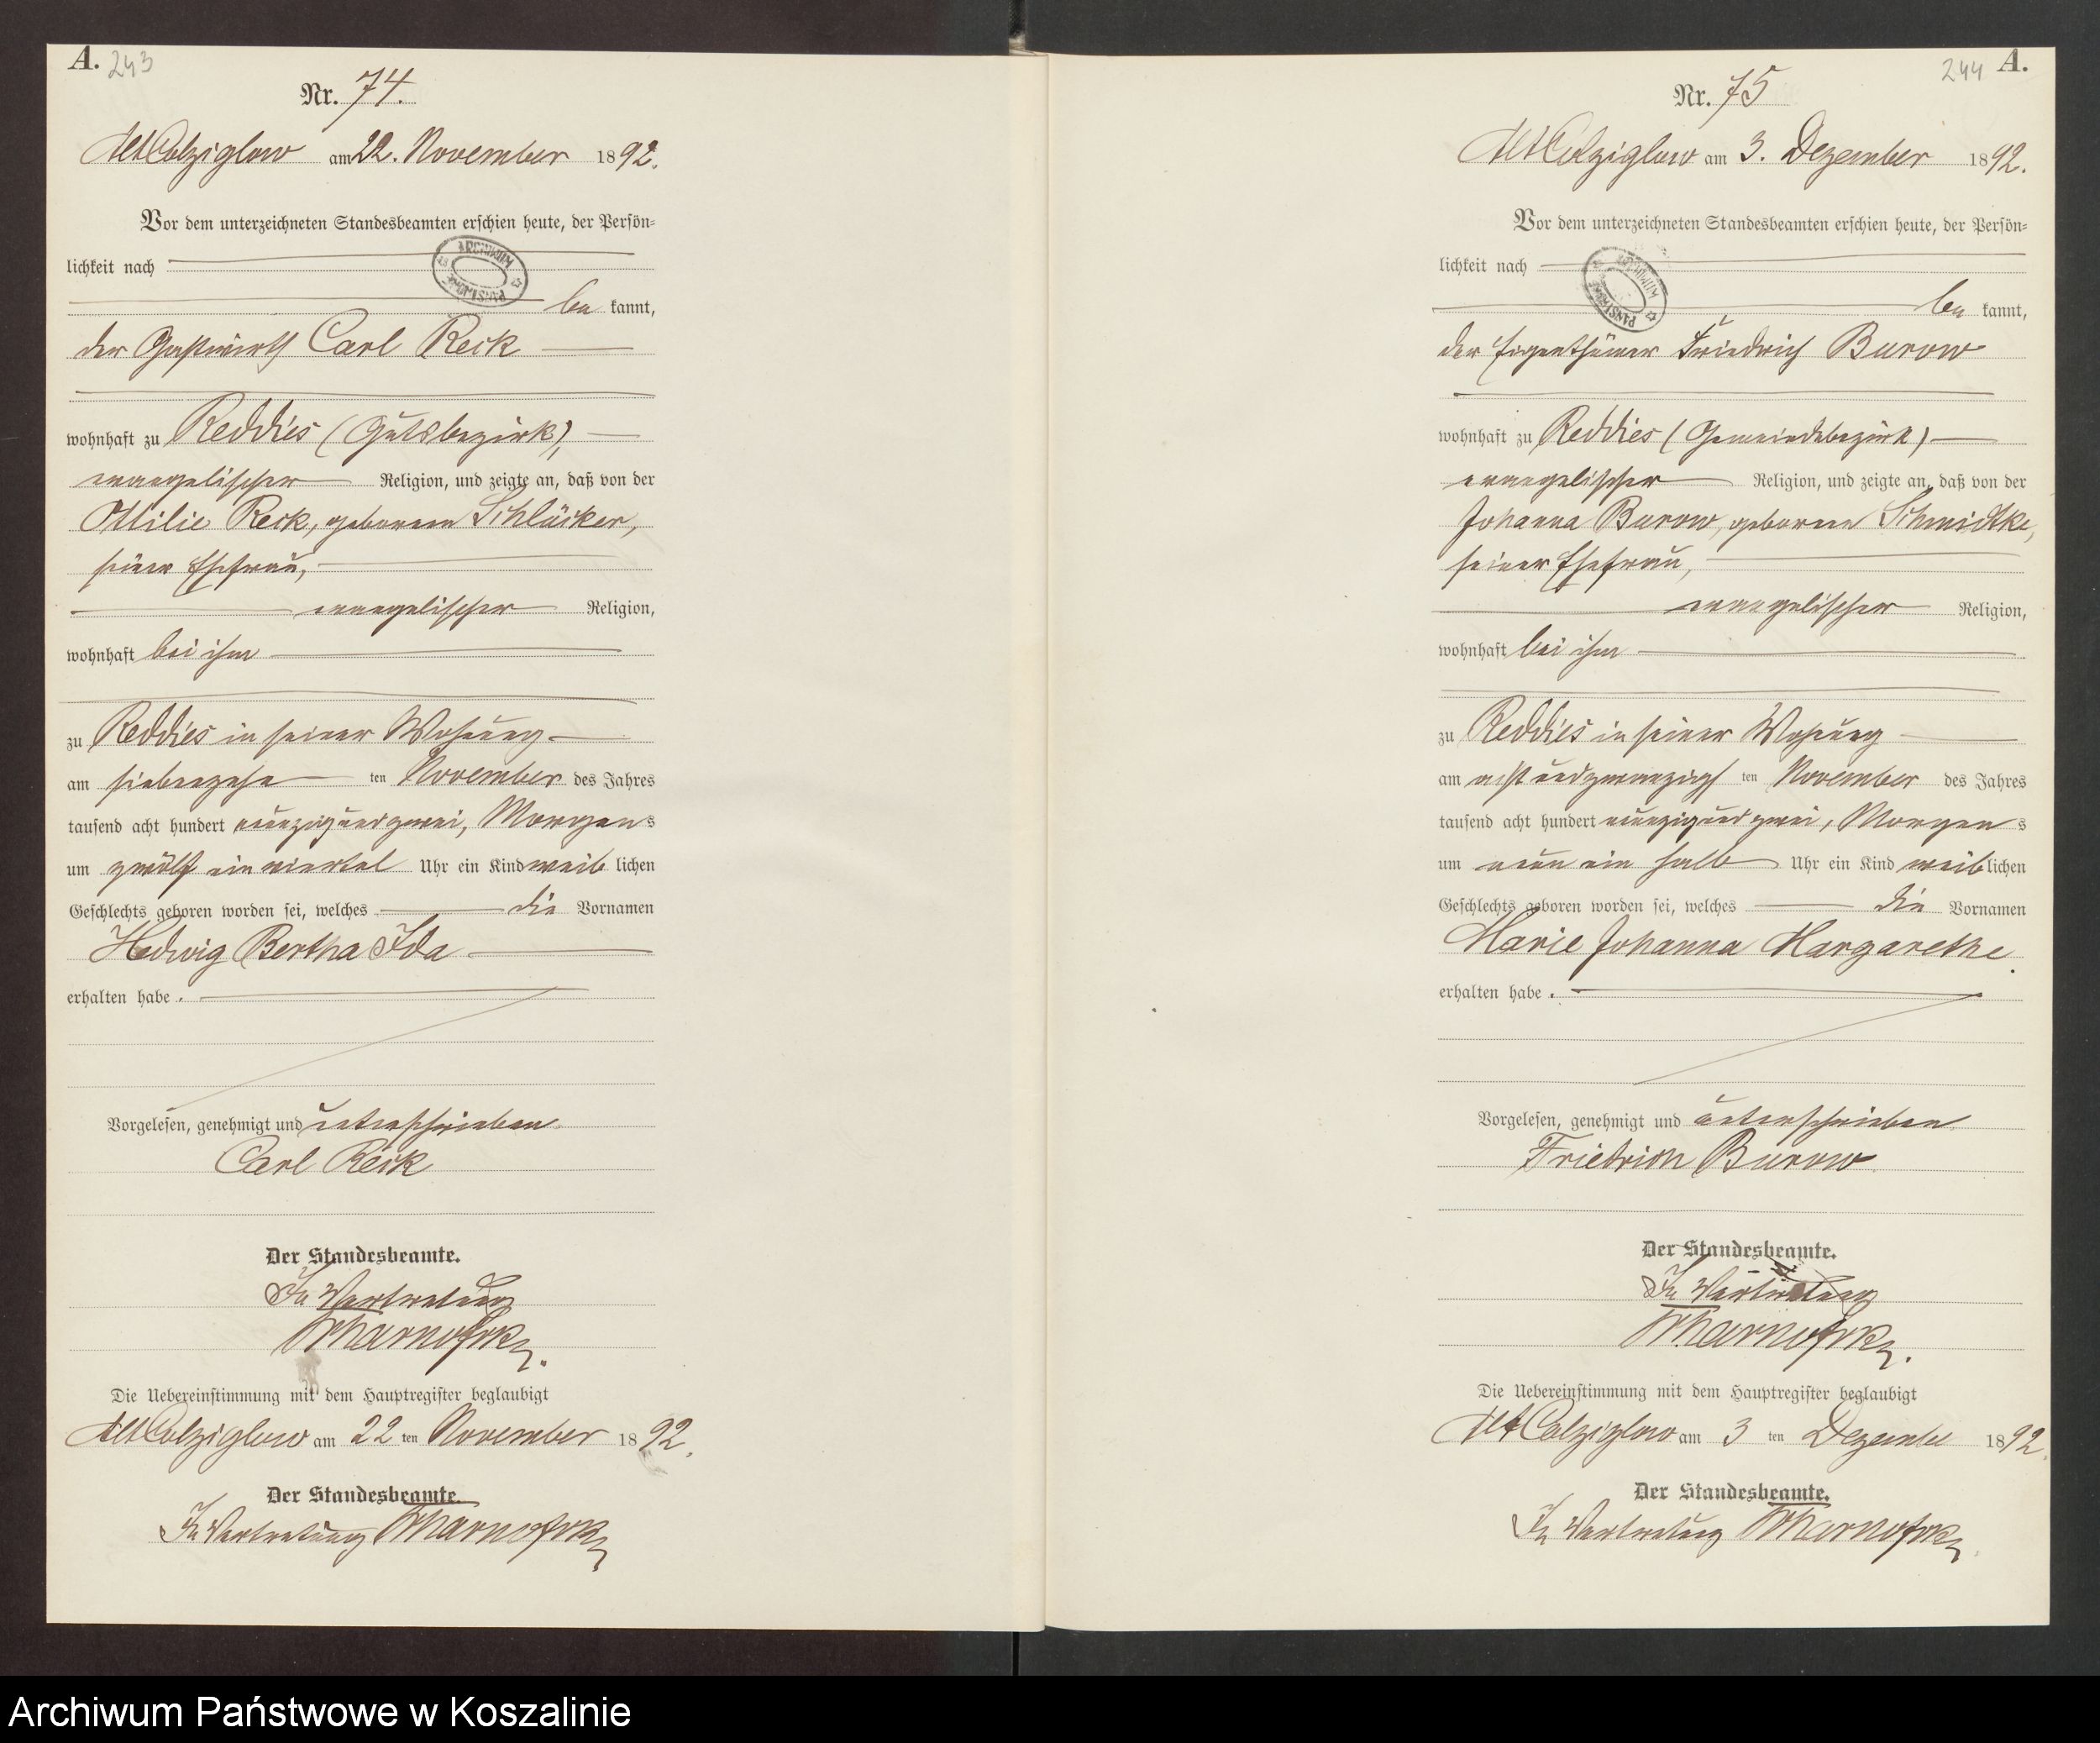 A. 243
Nr. 74.
Alt Colziglow am 22. November 1892.
Vor dem unterzeichneten Standesbeamten erschien heute, der Persön=
lichkeit nach
be kannt,
der Gastwirth Carl Reck
wohnhaft zu Reddies (Gutsbezirk),
evangelischer Religion, und zeigte an, daß von der
Ottilie Reck, geborenen Schläcker,
seiner Ehefrau,
evangelischer Religion,
wohnhaft bei ihm
zu Reddies in seiner Wohnung
am siebenzehn ten November des Jahres
tausend acht hundert neunzig und zwei, Morgens
um zwölf ein viertel Uhr ein Kind weib lichen
Geschlechts geboren worden sei, welches die Vornamen
Hedwig Bertha Ida
erhalten habe.
Vorgelesen, genehmigt und unterschrieben
Carl Reck
Der Standesbeamte.
In Vertretung
Die Uebereinstimmung mit dem Hauptregister beglaubigt
Alt Colziglow am 22 ten November 1892.
Der Standesbeamte.
In Vertretung
244 A.
Nr. 75
Alt Colziglow am 3. Dezember 1892.
Vor dem unterzeichneten Standesbeamten erschien heute, der Persön=
lichkeit nach
be kannt,
der Eigenthümer Friedrich Burow
wohnhaft zu Reddies (Gemeindebezirk)
evangelischer Religion, und zeigte an, daß von der
Johanna Burow, geborenen Schmidtke,
seiner Ehefrau,
evangelischer Religion,
wohnhaft bei ihm
zu Reddies in seiner Wohnung
am acht und zwanzigs ten November des Jahres
tausend acht hundert neunzig und zwei, Morgens
um neun ein halb Uhr ein Kind weiblichen
Geschlechts geboren worden sei, welches die Vornamen
Marie Johanna Margarethe
erhalten habe.
Vorgelesen, genehmigt und unterschrieben
Friedrich Burow
Der Standesbeamte.
In Vertretung
Die Uebereinstimmung mit dem Hauptregister beglaubigt
Alt Colziglow am 3 ten Dezember 1892.
Der Standesbeamte.
In Vertretung
Archiwum Państwowe w Koszalinie